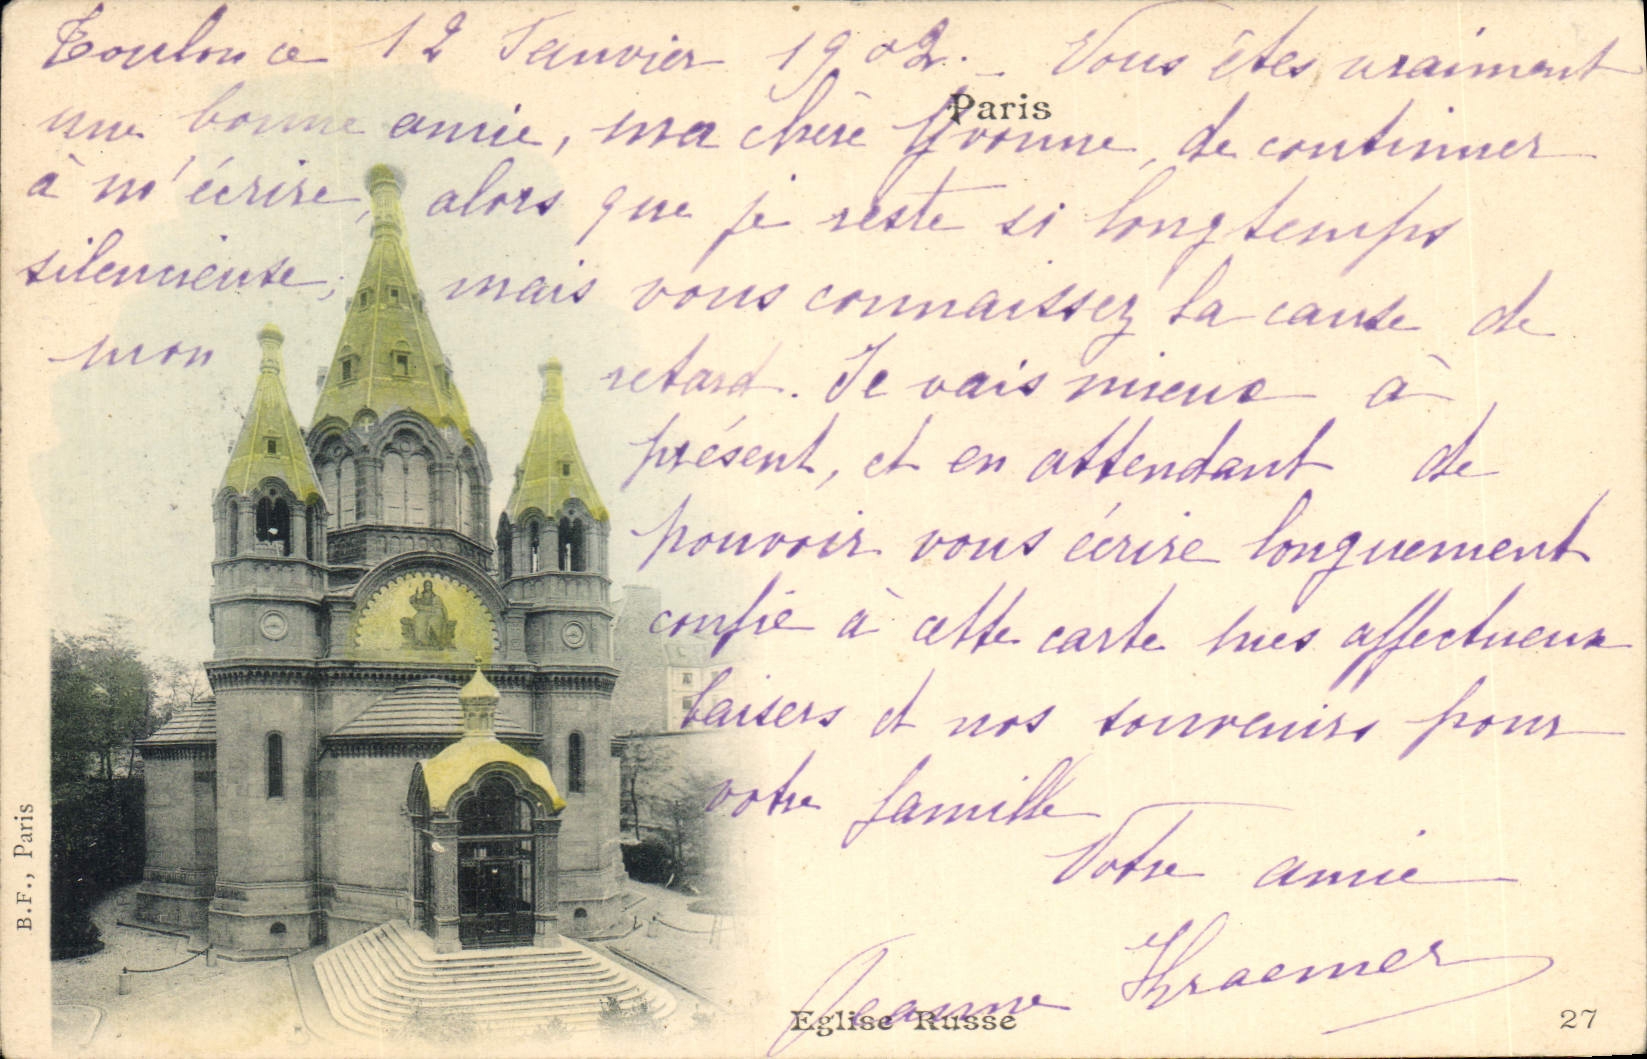 12 Janvier 1902. _ Vous êtes vraiment
Paris
une bonne amie, ma chère Yvonne, de continuer
à m'écrire, alors que je reste si longtemps
silencieuse; mais vous connaissez la cause de
mon retard. Je vais mieux à
présent, et en attendant de
pouvoir vous écrire longuement
confie à cette carte mes affectueux
baisers et nos souvenirs pour
votre famille
Votre amie
Jeanne Kraemer
Eglise Russe
27
B.F., Paris